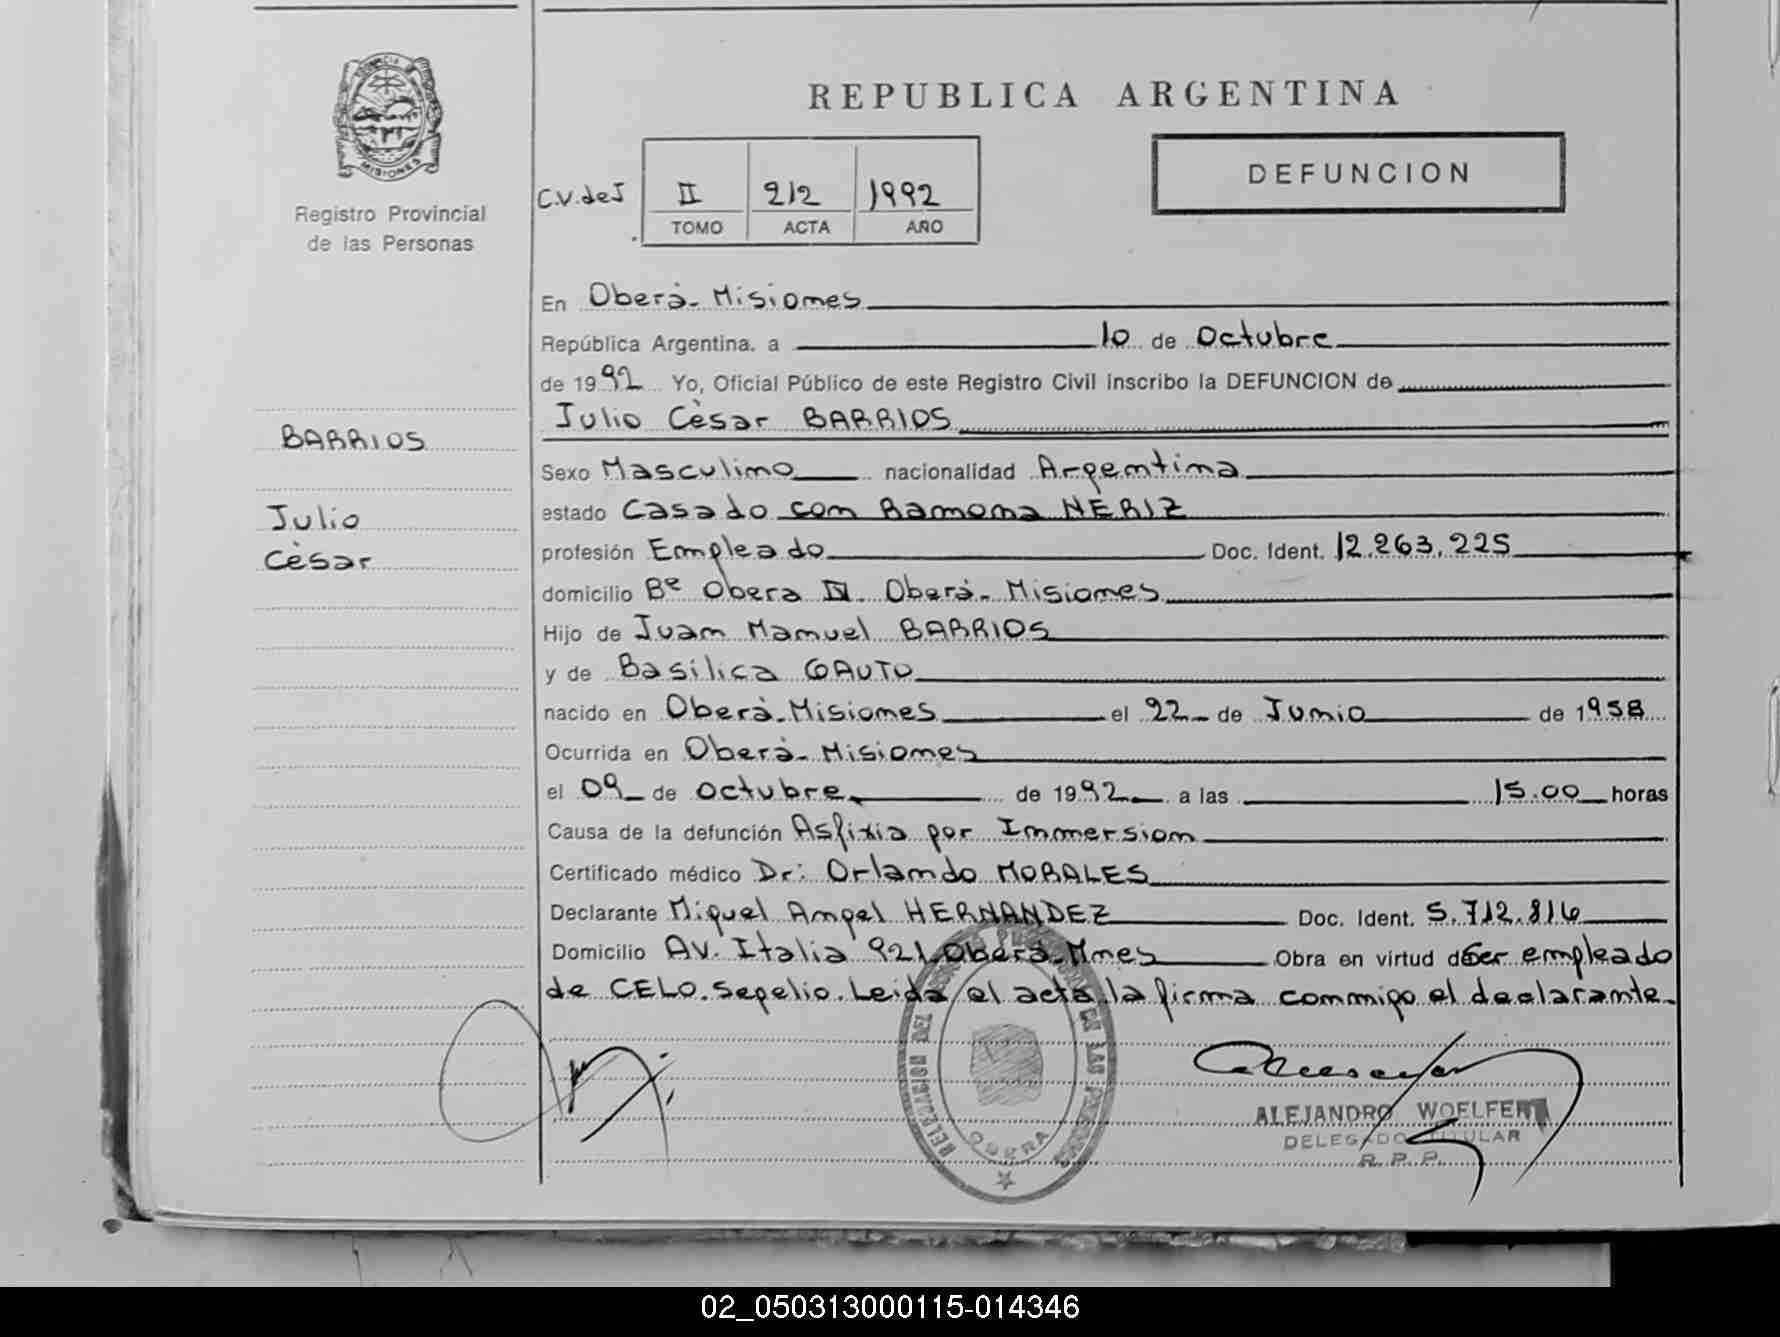 PROVINCIA DE
MISIONES
Registro Provincial
de las Personas
BARRIOS
Julio
Cèsar
REPUBLICA ARGENTINA
DEFUNCION
C.V.deJ II 212 1992
TOMO ACTA AÑO
En Oberà- Misiones
República Argentina, a 10 de Octubre
de 1992 Yo, Oficial Público de este Registro Civil inscribo la DEFUNCION de
Julio Cèsar BARRIOS
Sexo Masculino nacionalidad Argentina
estado Casado con Ramona NERIZ
profesión Empleado Doc. Ident. 12.263.225
domicilio Bº Obera IV. Oberá- Misiones
Hijo de Juan Manuel BARRIOS
y de Basilica GAUTO
nacido en Oberà-Misiones el 22 de Junio de 1958
Ocurrida en Oberà- Misiones
el 09 de Octubre de 1992 a las 15.00 horas
Causa de la defunción Asfixia por Inmersion
Certificado médico Dr: Orlando MORALES
Declarante Miguel Angel HERNANDEZ Doc. Ident. 5.712.816
Domicilio Av. Italia 921 Oberà-Mnes Obra en virtud de Ser empleado
de CELO.Sepelio.Leida el acta la firma conmigo el declarante.
OBERA
ALEJANDRO WOELFERT
DELEGADO TITULAR
R. P. P.
02_050313000115-014346